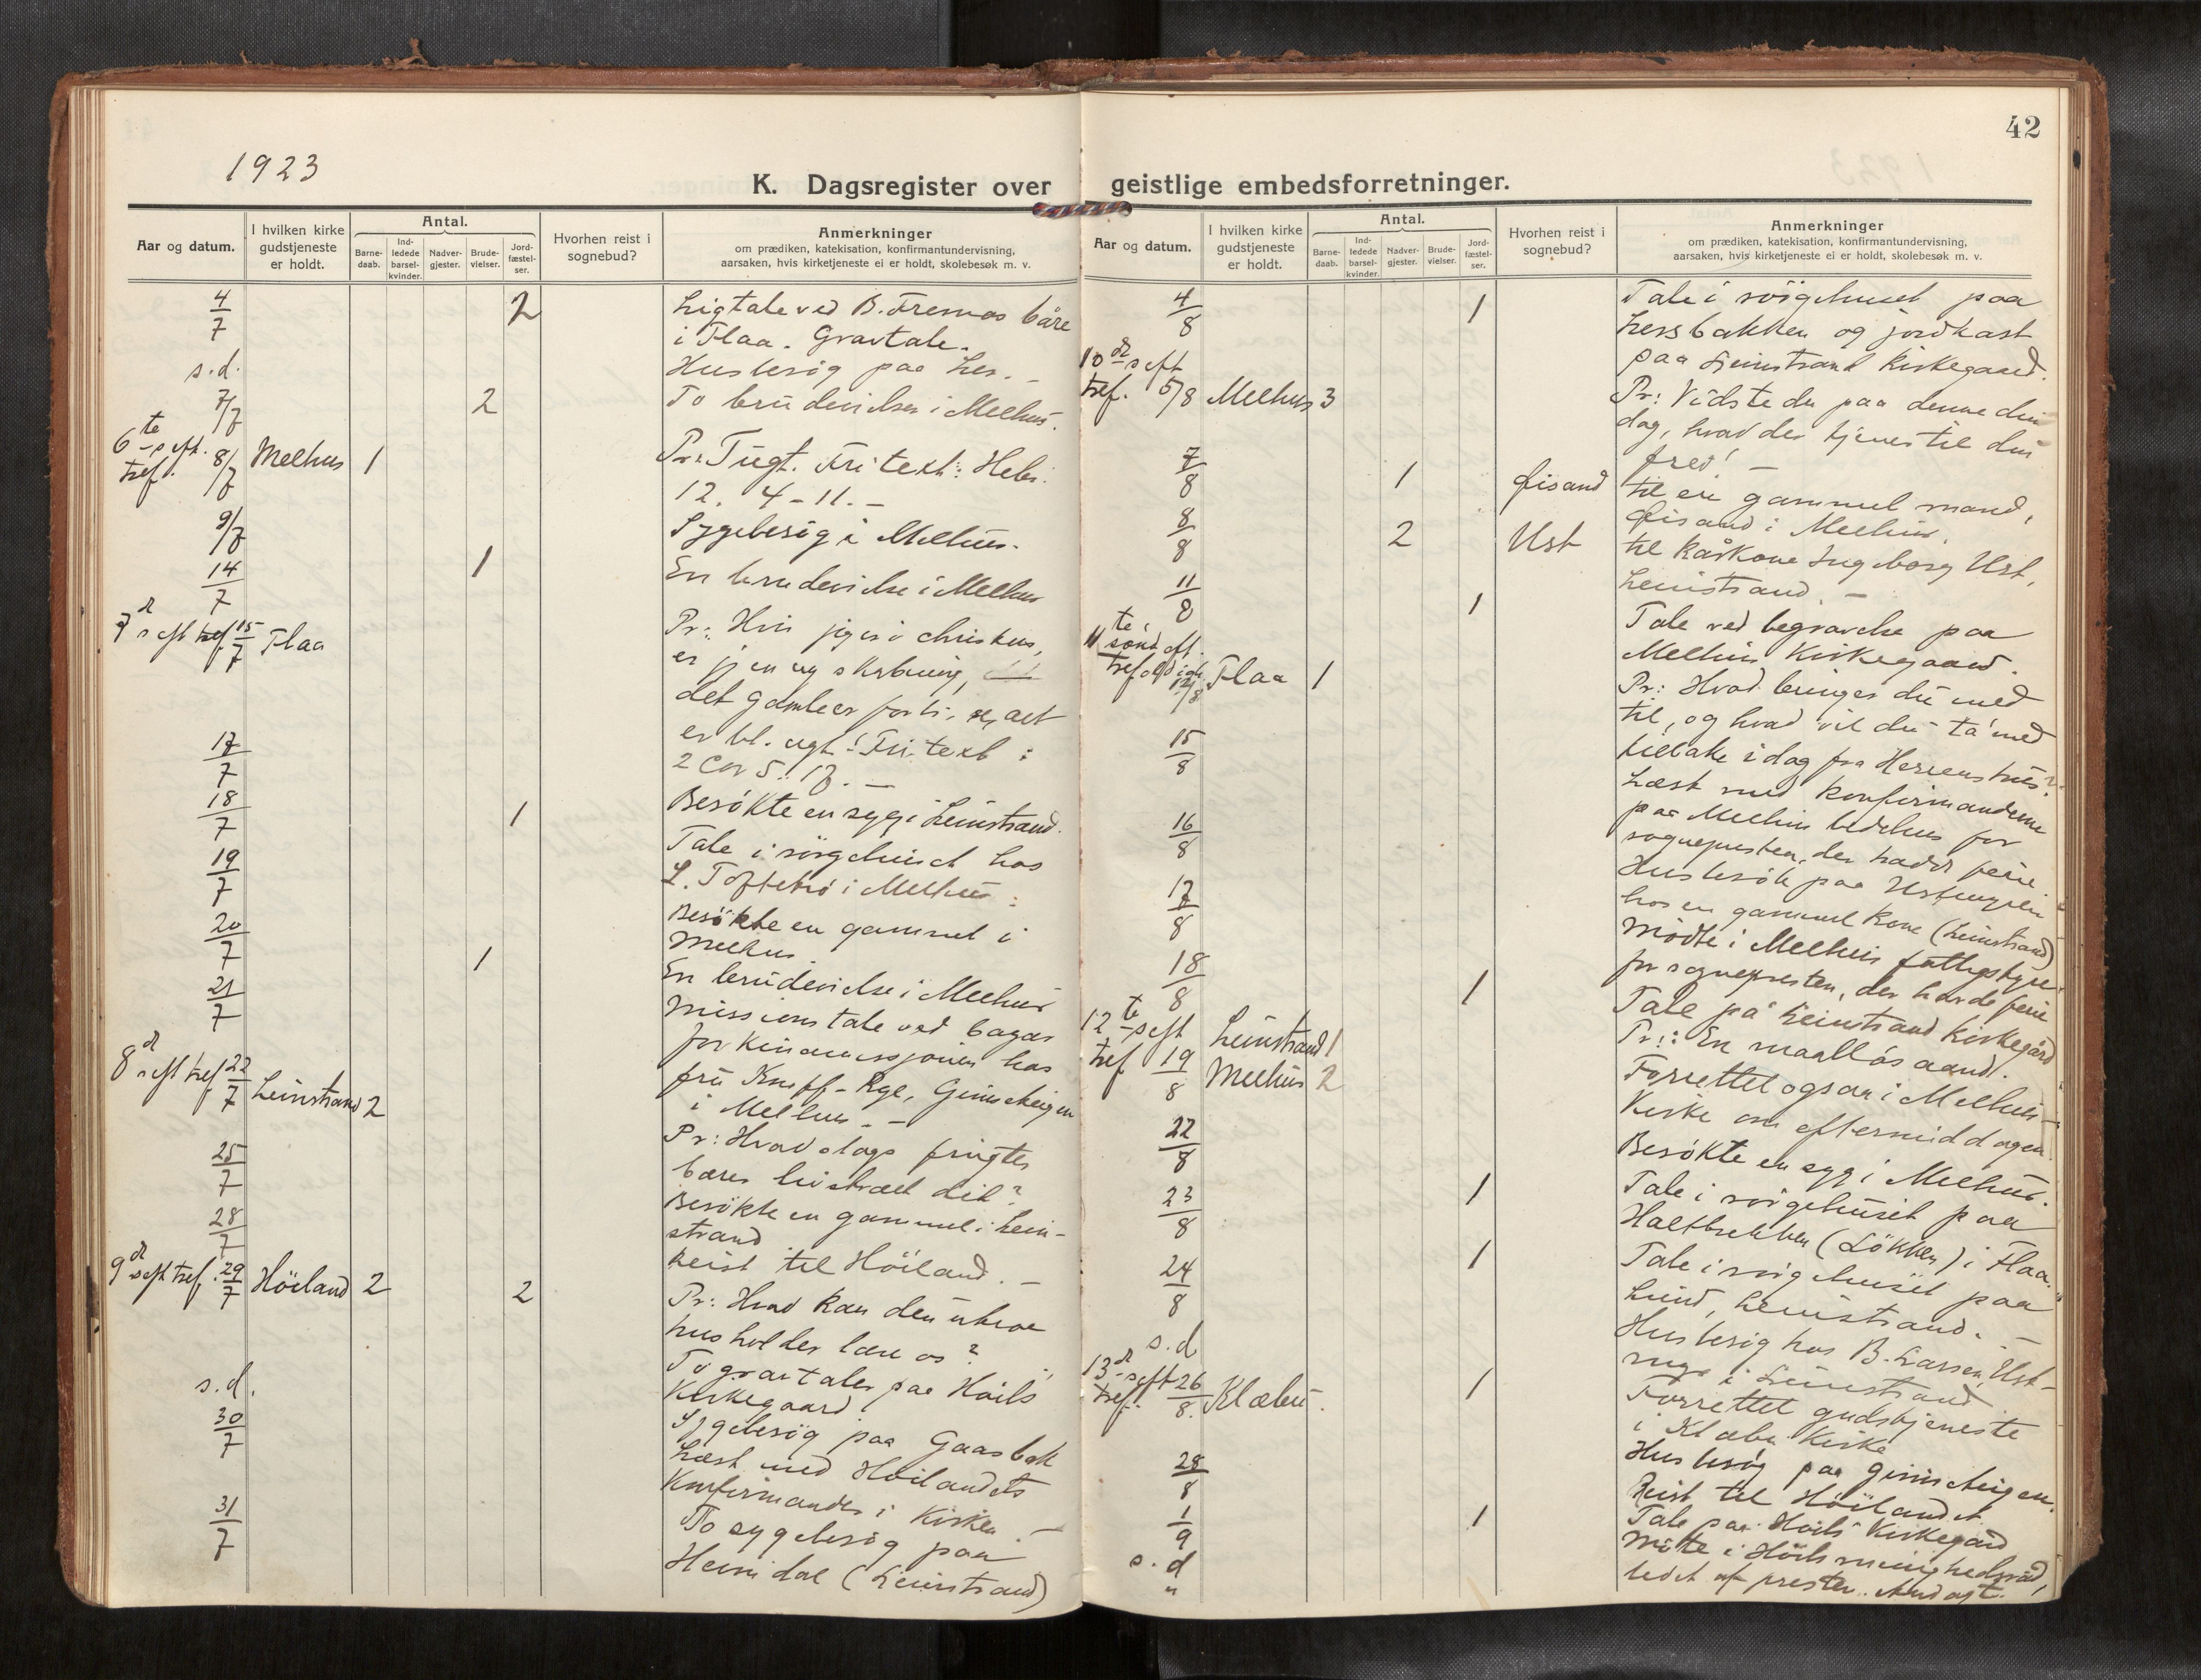 1923
K. Dagsregister over
Aar og datum.
I hvilken kirke
gudstjeneste
er holdt.
Antal.
Barne-
daab.
Ind-
ledede
barsel-
kvinder.
Nadver-
gjester.
Brude-
vielser.
Jord-
fæstel-
ser.
Hvorhen reist i
sognebud?
Anmerkninger
om prædiken, katekisation, konfirmantundervisning,
aarsaken, hvis kirketjeneste ei er holdt, skolebesøk m. v.
4/7 2 Ligtale ved B. Fremos båre
i Flaa. Gravtale.
s.d. Husbesøg paa Ler. –
7/7 2 To brudevielser i Melhus.
6te s. eft. tref. 8/7 Melhus 1 Pr: Tugt. Fri text: Hebr.
12. 4-11. –
9/7 Sygebesøg i Melhus.
14/7 1 En brudevielse i Melhus
7d s eft tref. 15/7 Flaa Pr: Hvis jeg er i Christus,
er jeg en ny skabning,
det gamle er forbi, se, alt
er bl. nyt! Fri text:
2 Cor 5: 17. –
17/7 Besøkte en syg i Leinstrand.
18/7 1 Tale i sörgehuset hos
L. Toftebrö i Melhus.
19/7 Besøkte en gammel i
Melhus.
20/7 1 En brudevielse i Melhus
21/7 Missionstale ved bazar
for Kinamissjonen hos
fru Knuff-Rye, Gimseheigen
i Melhus. –
8d s eft tref 22/7 Leinstrand 2 Pr: Hvad slags frugter
bærer livstræet dit?
25/7 Besøkte en gammel i Lein-
strand
28/7 Reist til Höiland. –
9d s eft tref. 29/7 Höiland 2 2 Pr: Hvad kan den utroe
husholder lære os?
To gravtaler paa Höil's
Kirkegaard.
s.d. Sygebesøg paa Gaasbak
30/7 Læst med Höilandets
Konfirmander i Kirken. –
31/7 To sygebesøg paa
Heimdal (Leinstrand)
42
geistlige embedsforretninger.
Aar og datum.
I hvilken kirke
gudstjeneste
er holdt.
Antal.
Barne-
daab.
Ind-
ledede
barsel-
kvinder.
Nadver-
gjester.
Brude-
vielser.
Jord-
fæstel-
ser.
Hvorhen reist i
sognebud?
Anmerkninger
om prædiken, katekisation, konfirmantundervisning,
aarsaken, hvis kirketjeneste ei er holdt, skolebesøk m. v.
4/8 1 Tale i sörgehuset paa
Lersbakken og jordkast
paa Leinstrand kirkegaard.
10de s eft
tref. 5/8 Melhus 3 Pr: Vidste du paa denne din
dag, hvad der tjener til din
fred! –
7/8 1 Øisand til en gammel mand,
Øisand i Melhus.
8/8 2 Ust til kårkone Ingeborg Ust,
Leinstrand. –
11/8 1 Tale ved begravelse paa
Melhus Kirkegaard.
11te sönd eft.
tref. 12/8 Flaa 1 Pr: Hvad bringer du med
til, og hvad vil du ta med
tilbake idag fra Herrens hus?
15/8 Læst med konfirmanderne
paa Melhus bedehus for
sognepresten, der hadde ferie.
16/8 Husbesök paa Ustengen
hos en gammel kone (Leinstrand)
17/8 Mödte i Melhus fattigstyre
for sognepresten, der havde ferie
18/8 1 Tale på Leinstrand kirkegård
12te s eft
tref 19/8 Leinstrand 1 Pr: En maallös aand.
Melhus 2 Forrettet ogsaa i Melhus
Kirke om eftermiddagen.
22/8 Besökte en syg i Melhus.
23/8 1 Tale i sörgehuset paa
Haltbrekken (Lökken) i Flaa.
24/8 1 Tale i sörgehuset paa
Lund, Leinstrand. –
s.d Husbesög hos B. Larsen, Ust-
i Leinstrand
13d s eft
tref. 26/8. Klæbu. 1 Forrettet gudstjeneste
i Klæbu Kirke
28/8 Husbesög paa Gimseheigen.
Reist til Höilandet
1/9 1 Tale paa Höil's Kirkegård
s.d Möte i Höils menighedsråd,
" ledet af presten. Andagt.